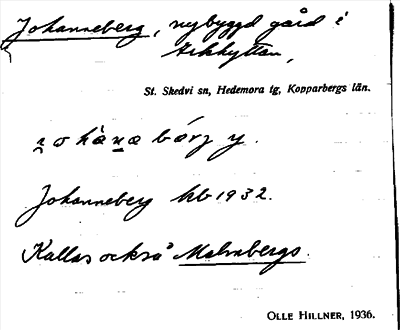 Johanneberg, nybyggd gård i
Arkhyttan,
St. Skedvi sn, Hedemora tg, Kopparbergs län.
Johanneberg hb 1932.
Kallas också Malmbergs.
OLLE HILLNER, 1936.